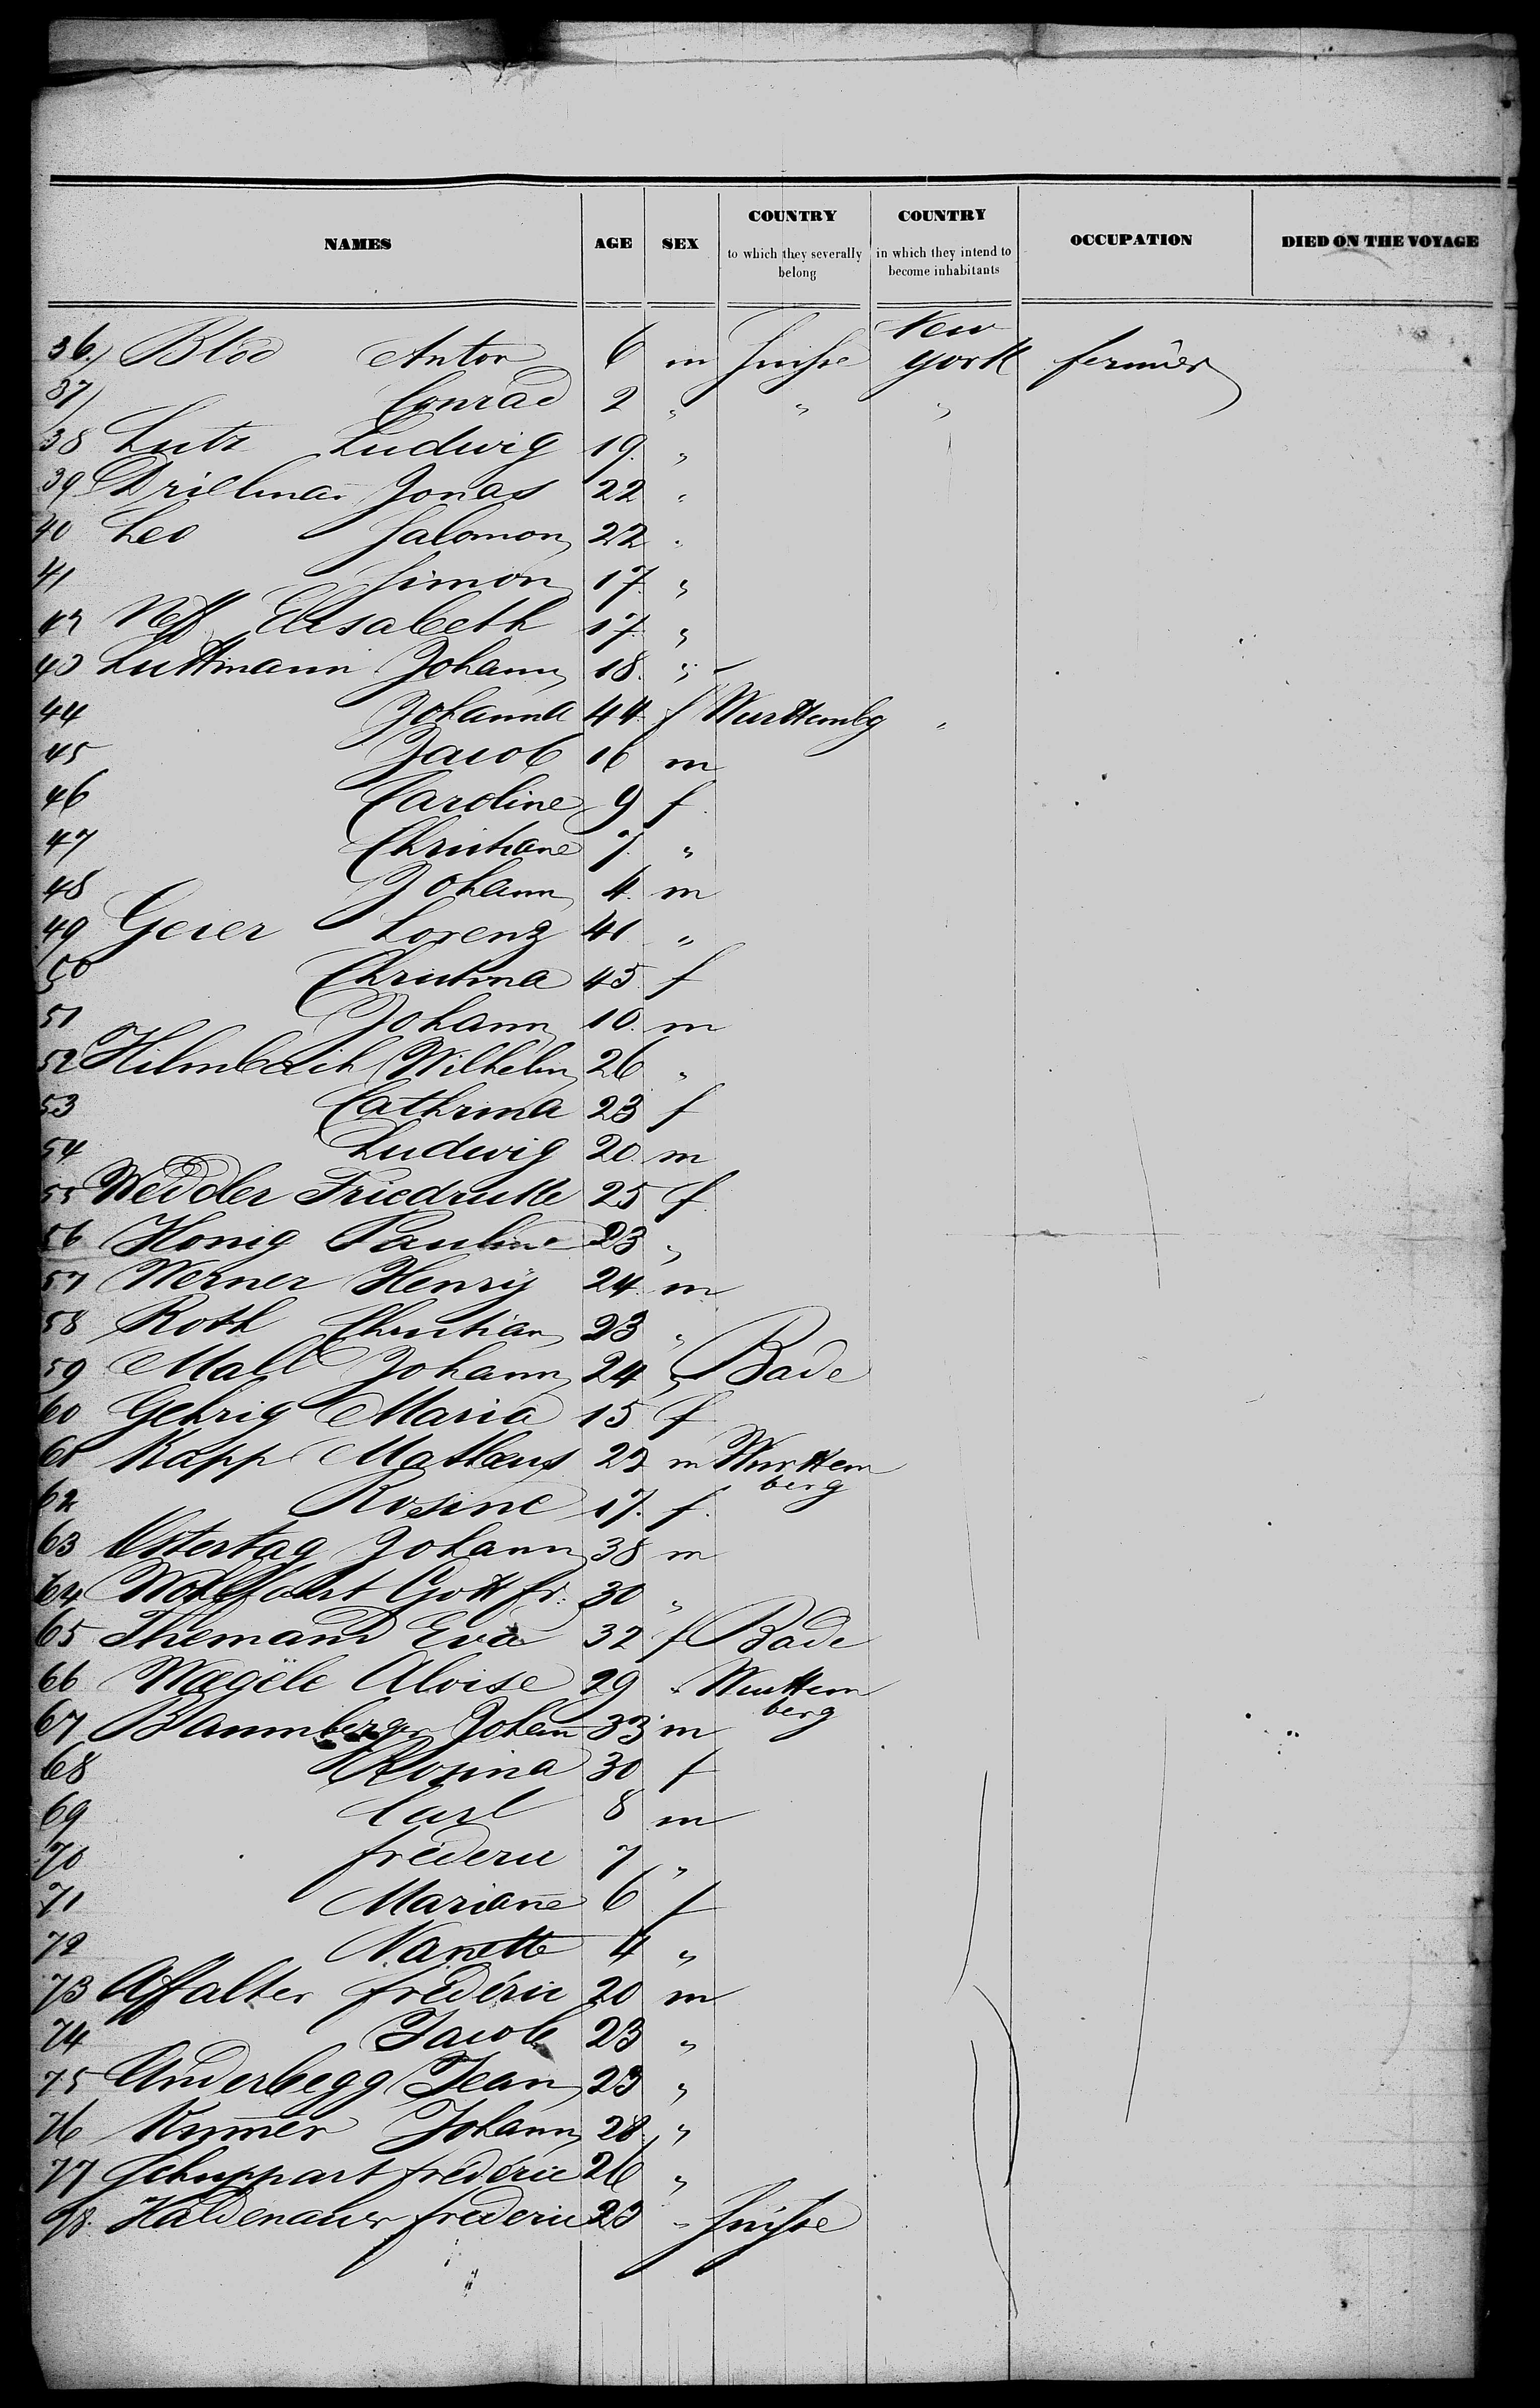 NAMES AGE SEX COUNTRY to which they severally belong COUNTRY in which they intend to become inhabitants OCCUPATION DIED ON THE VOYAGE
36.) Bloc Anton 6 m Suisse New York fermier
37) Conrad 2 " " "
38 Lutz Ludwig 19. "
39 Jonas 22 "
40 Leo Salomon 22 "
41 Simon 17. "
42 Neff Elisabeth 17. "
43 Luttmann Johann 18. "
44 Johanna 44. f Wurttembg "
45 Jacob 16 m
46 Caroline 9 f.
47 Christiane 7. "
48 Johann 4. m
49 Geier Lorenz 41 "
50 Christina 45. f
51 Johann 10. m
52 Wilhelm 26 "
53 Cathrina 23 f
54 Ludwig 20. m
55 Weidler 25 f.
56 Honig Pauline 23 "
57 Werner Henry 24. m
58 Roth Christian 23 "
59 Mall Johann 24 " Bade
60 Gehrig Maria 15 f
61 Rapp Matheus 22 m Wurttem
berg
62 Rosine 17. f.
63 Ostertag Johann 38 m
64 Wohlfahrt Gottfr. 30 "
65 Themand Eva 32 f Bade
66 Wagële Aloise 29 " Wurttem
berg
67 Baumberger Johann 33 m
68 Rosina 30 f
69 Carl 8 m
70 frederic 7 "
71 Mariane 6 f
72 Nanette 4 "
73 Affalter frédéric 20 m
74 Jacob 23 "
75 Anderhegg Jean 23 "
76 Kumer Johann 28. "
77 Schuppart frédéric 26 "
78. Haldenauer frederic 23 " Suisse